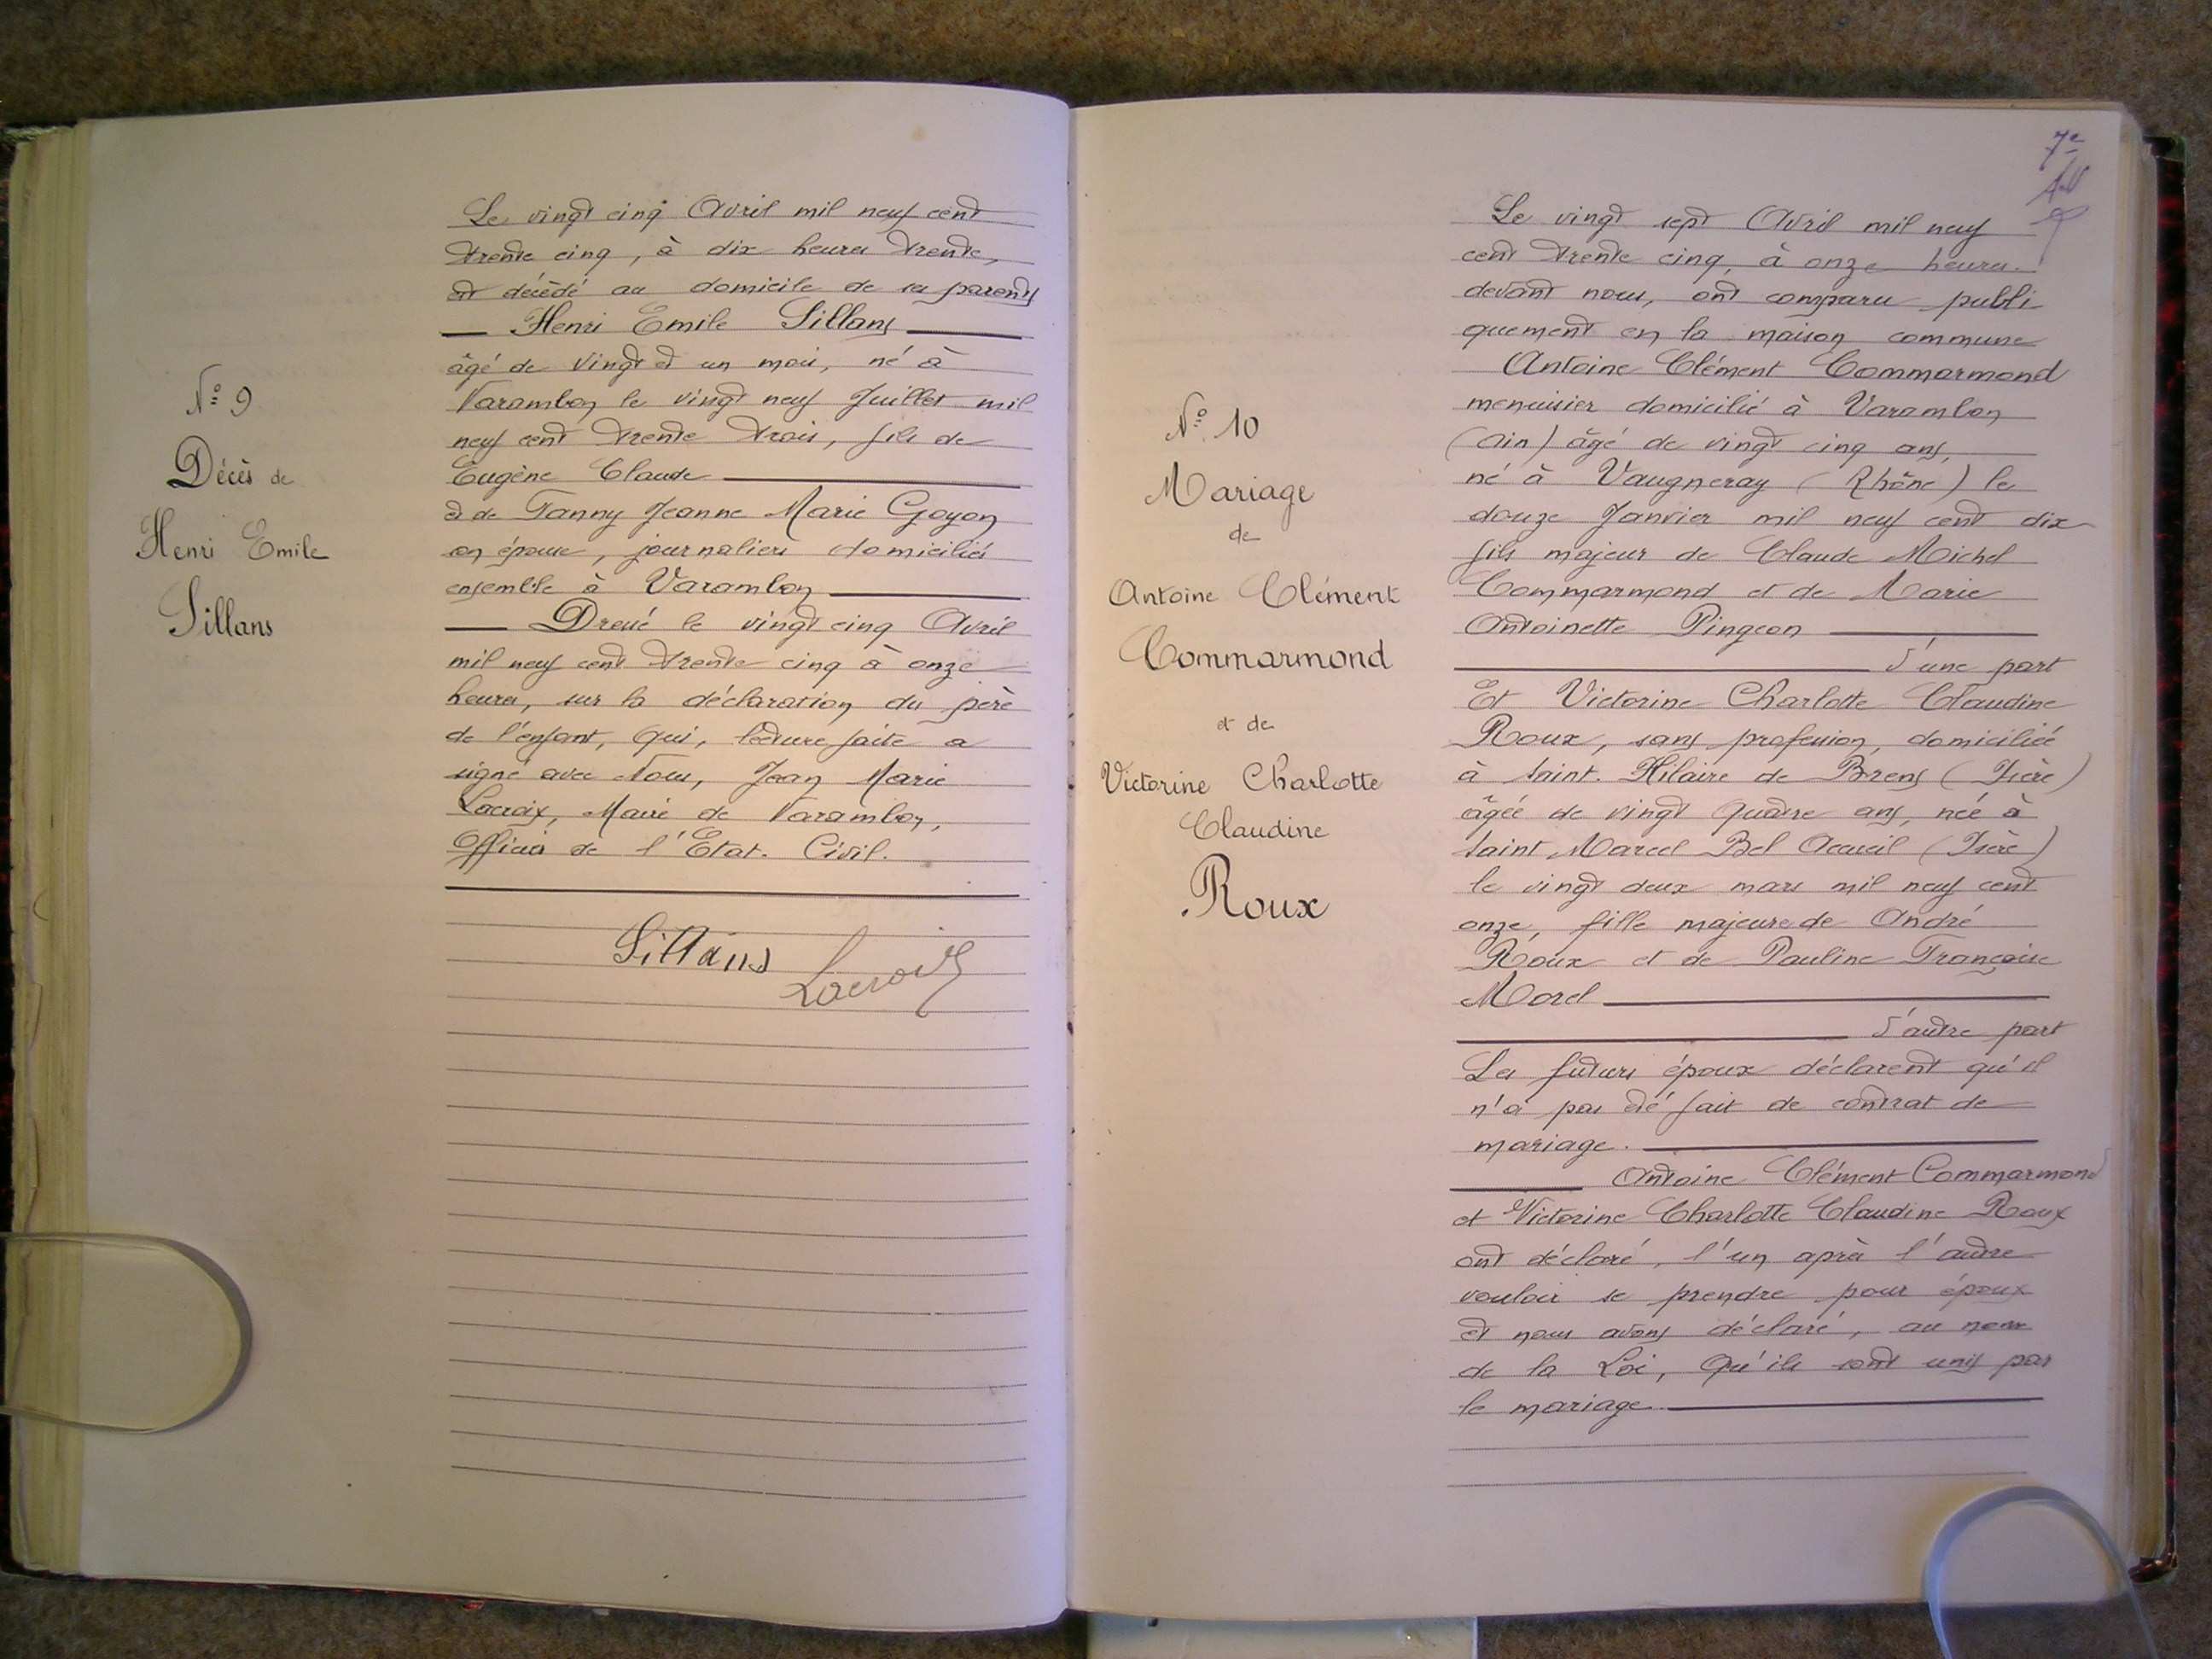 N° 9
Décès de
Henri Emile
Sillans
Le vingt cinq Avril mil neuf cent
trente cinq, à dix heures trente,
est décédé au domicile de ses parents
Henri Emile Sillans
âgé de vingt et un mois, né à
Varambon le vingt neuf Juillet mil
neuf cent trente trois, fils de
Eugène Claude
et de Fanny Jeanne Marie Goyon
son épouse, journaliers domiciliés
ensemble à Varambon
Dressé le vingt cinq Avril
mil neuf cent trente cinq à onze
heures, sur la déclaration du père
de l'enfant, qui, lecture faite a
signé avec Nous, Jean Marie
Lacroix, Maire de Varambon,
Officier de l'Etat. Civil.
Sillans
Lacroix
7e
N° 10
Mariage
de
Antoine Clément
Commarmond
et de
Victorine Charlotte
Claudine
Roux
Le vingt sept Avril mil neuf
cent trente cinq, à onze heures.
devant nous, ont comparu publi
quement en la maison commune
Antoine Clément Commarmond
menuisier domicilié à Varambon
(Ain) âgé de vingt cinq ans,
né à Vaugneray (Rhône) le
douze Janvier mil neuf cent dix
fils majeur de Claude Michel
Commarmond et de Marie
Antoinette Pingeon
d'une part
Et Victorine Charlotte Claudine
Roux, sans profession, domiciliée
à Saint. Hilaire de Brens (Isère)
âgée de vingt quatre ans, née à
Saint Marcel Bel Accueil (Isère)
le vingt deux mars mil neuf cent
onze, fille majeure de André
Roux et de Pauline Françoise
Morel
d'autre part
Les futurs époux déclarent qu'il
n'a pas été fait de contrat de
mariage.
Antoine Clément Commarmond
et Victorine Charlotte Claudine Roux
ont déclaré, l'un après l'autre
vouloir se prendre pour époux
et nous avons déclaré, au nom
de la Loi, qu'ils sont unis par
le mariage.